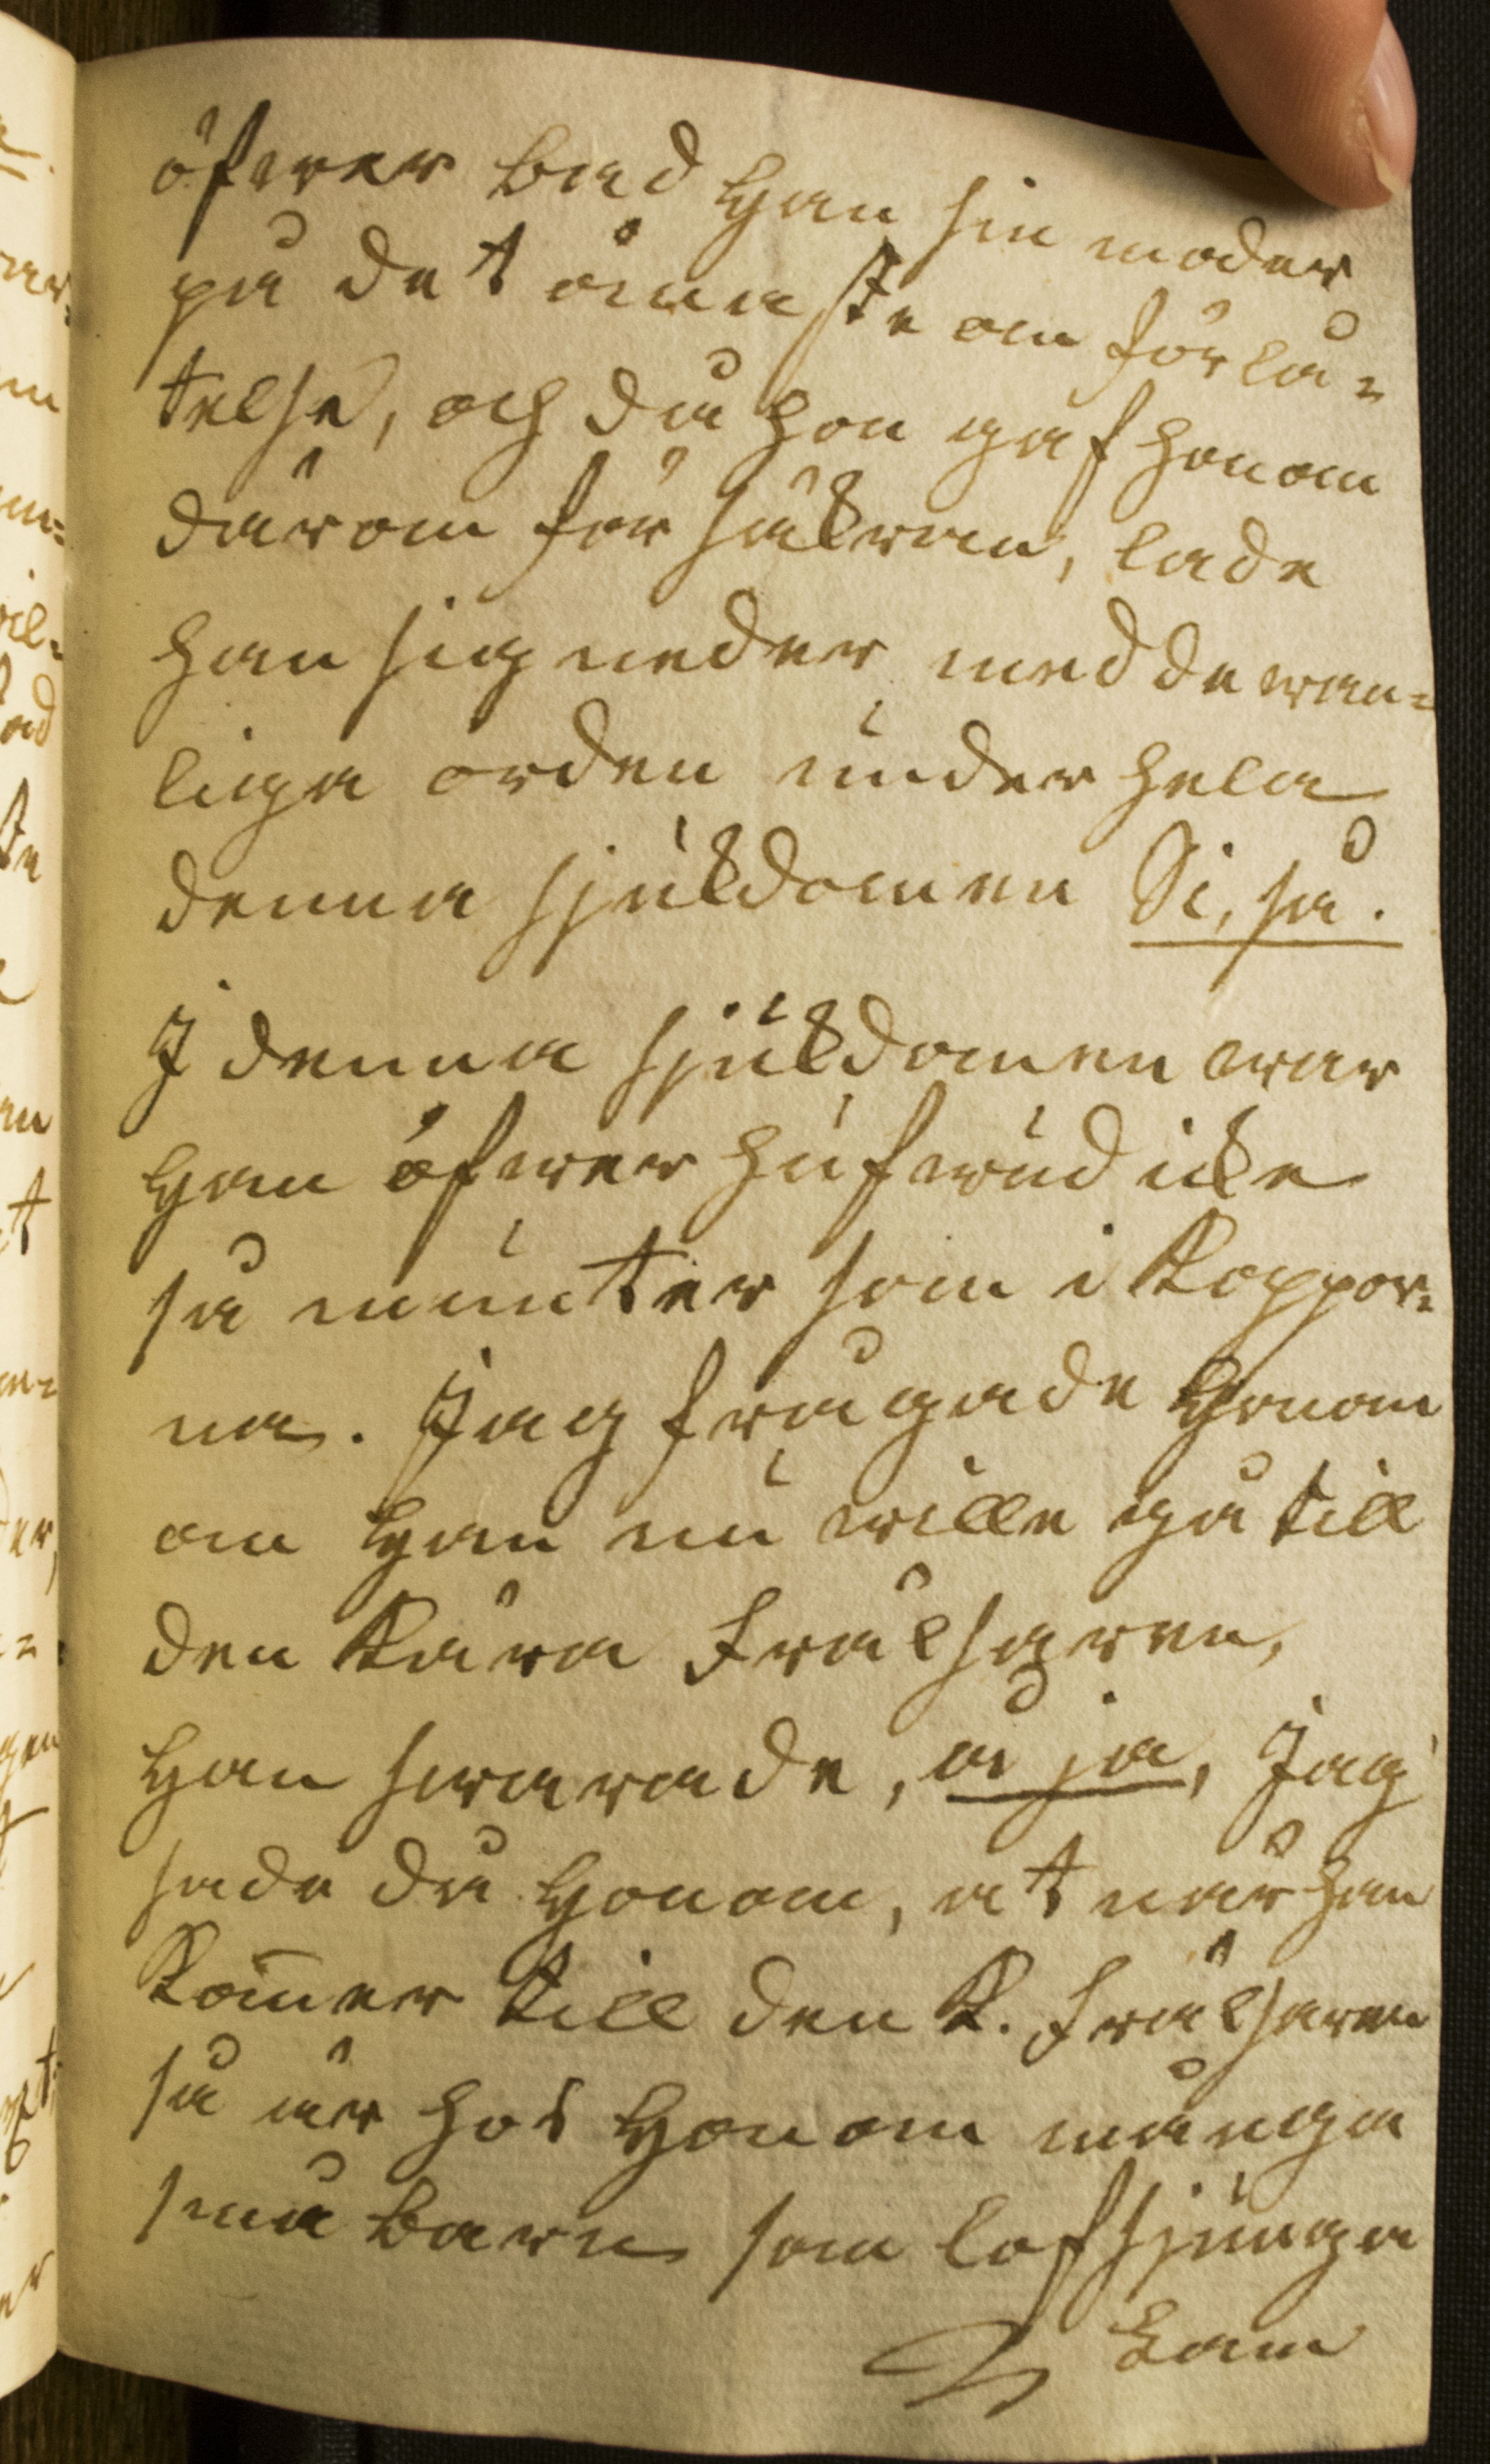 öfwer bad Han sin moder
på det ömaste om förlå-
telse, och då hon gaf honom
därom försäkran, lade
han sig neder med de wan-
liga orden under hela
denna sjukdomen Si, så.
I denna sjukdomen war
Han öfwer hufwud icke
så munter som i Koppor-
na. Jag frågade Honom
om Han nu wille gå till
den Kära Frälsaren,
Han swarade, å ja, Jag
sade då Honom, at när han
Kom̄er till den K. Frälsaren
så är hos Honom många
små barn som lofsjunga
Lam